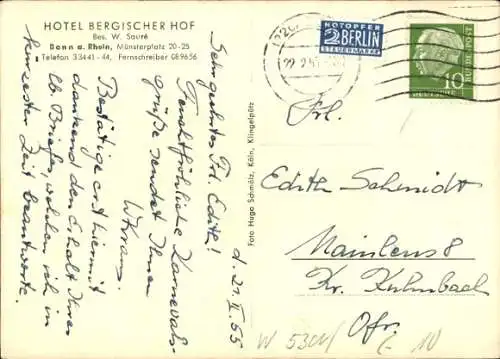 HOTEL BERGISCHER HOF
Bes. W. Sauré
Bonn a. Rhein, Münsterplatz 20-25
Telefon 33441-44, Fernschreiber 089656
d. 21. II. 55
Sehr geehrtes Frl. Edith!
Feuchtfröhliche Karnevals-
grüße sendet Ihnen
Bestätige erst hiermit
dankend den Erhalt Ihres
lb. Briefes, welchen ich in
kürzester Zeit beantworte.
Foto Hugo Schmölz, Köln, Klingelpütz
NOTOPFER
2 BERLIN
STEUERMARKE
10
DEUTSCHE BUNDESPOST
Frl.
Edith Schmidt
Mainleus 8
Kr. Kulmbach
Ofr.